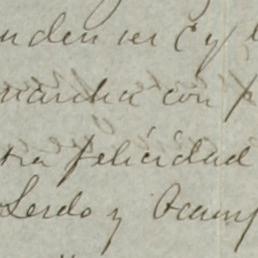 nden ser
marcha con p
tra felicidad
Lerdo y Ocamp